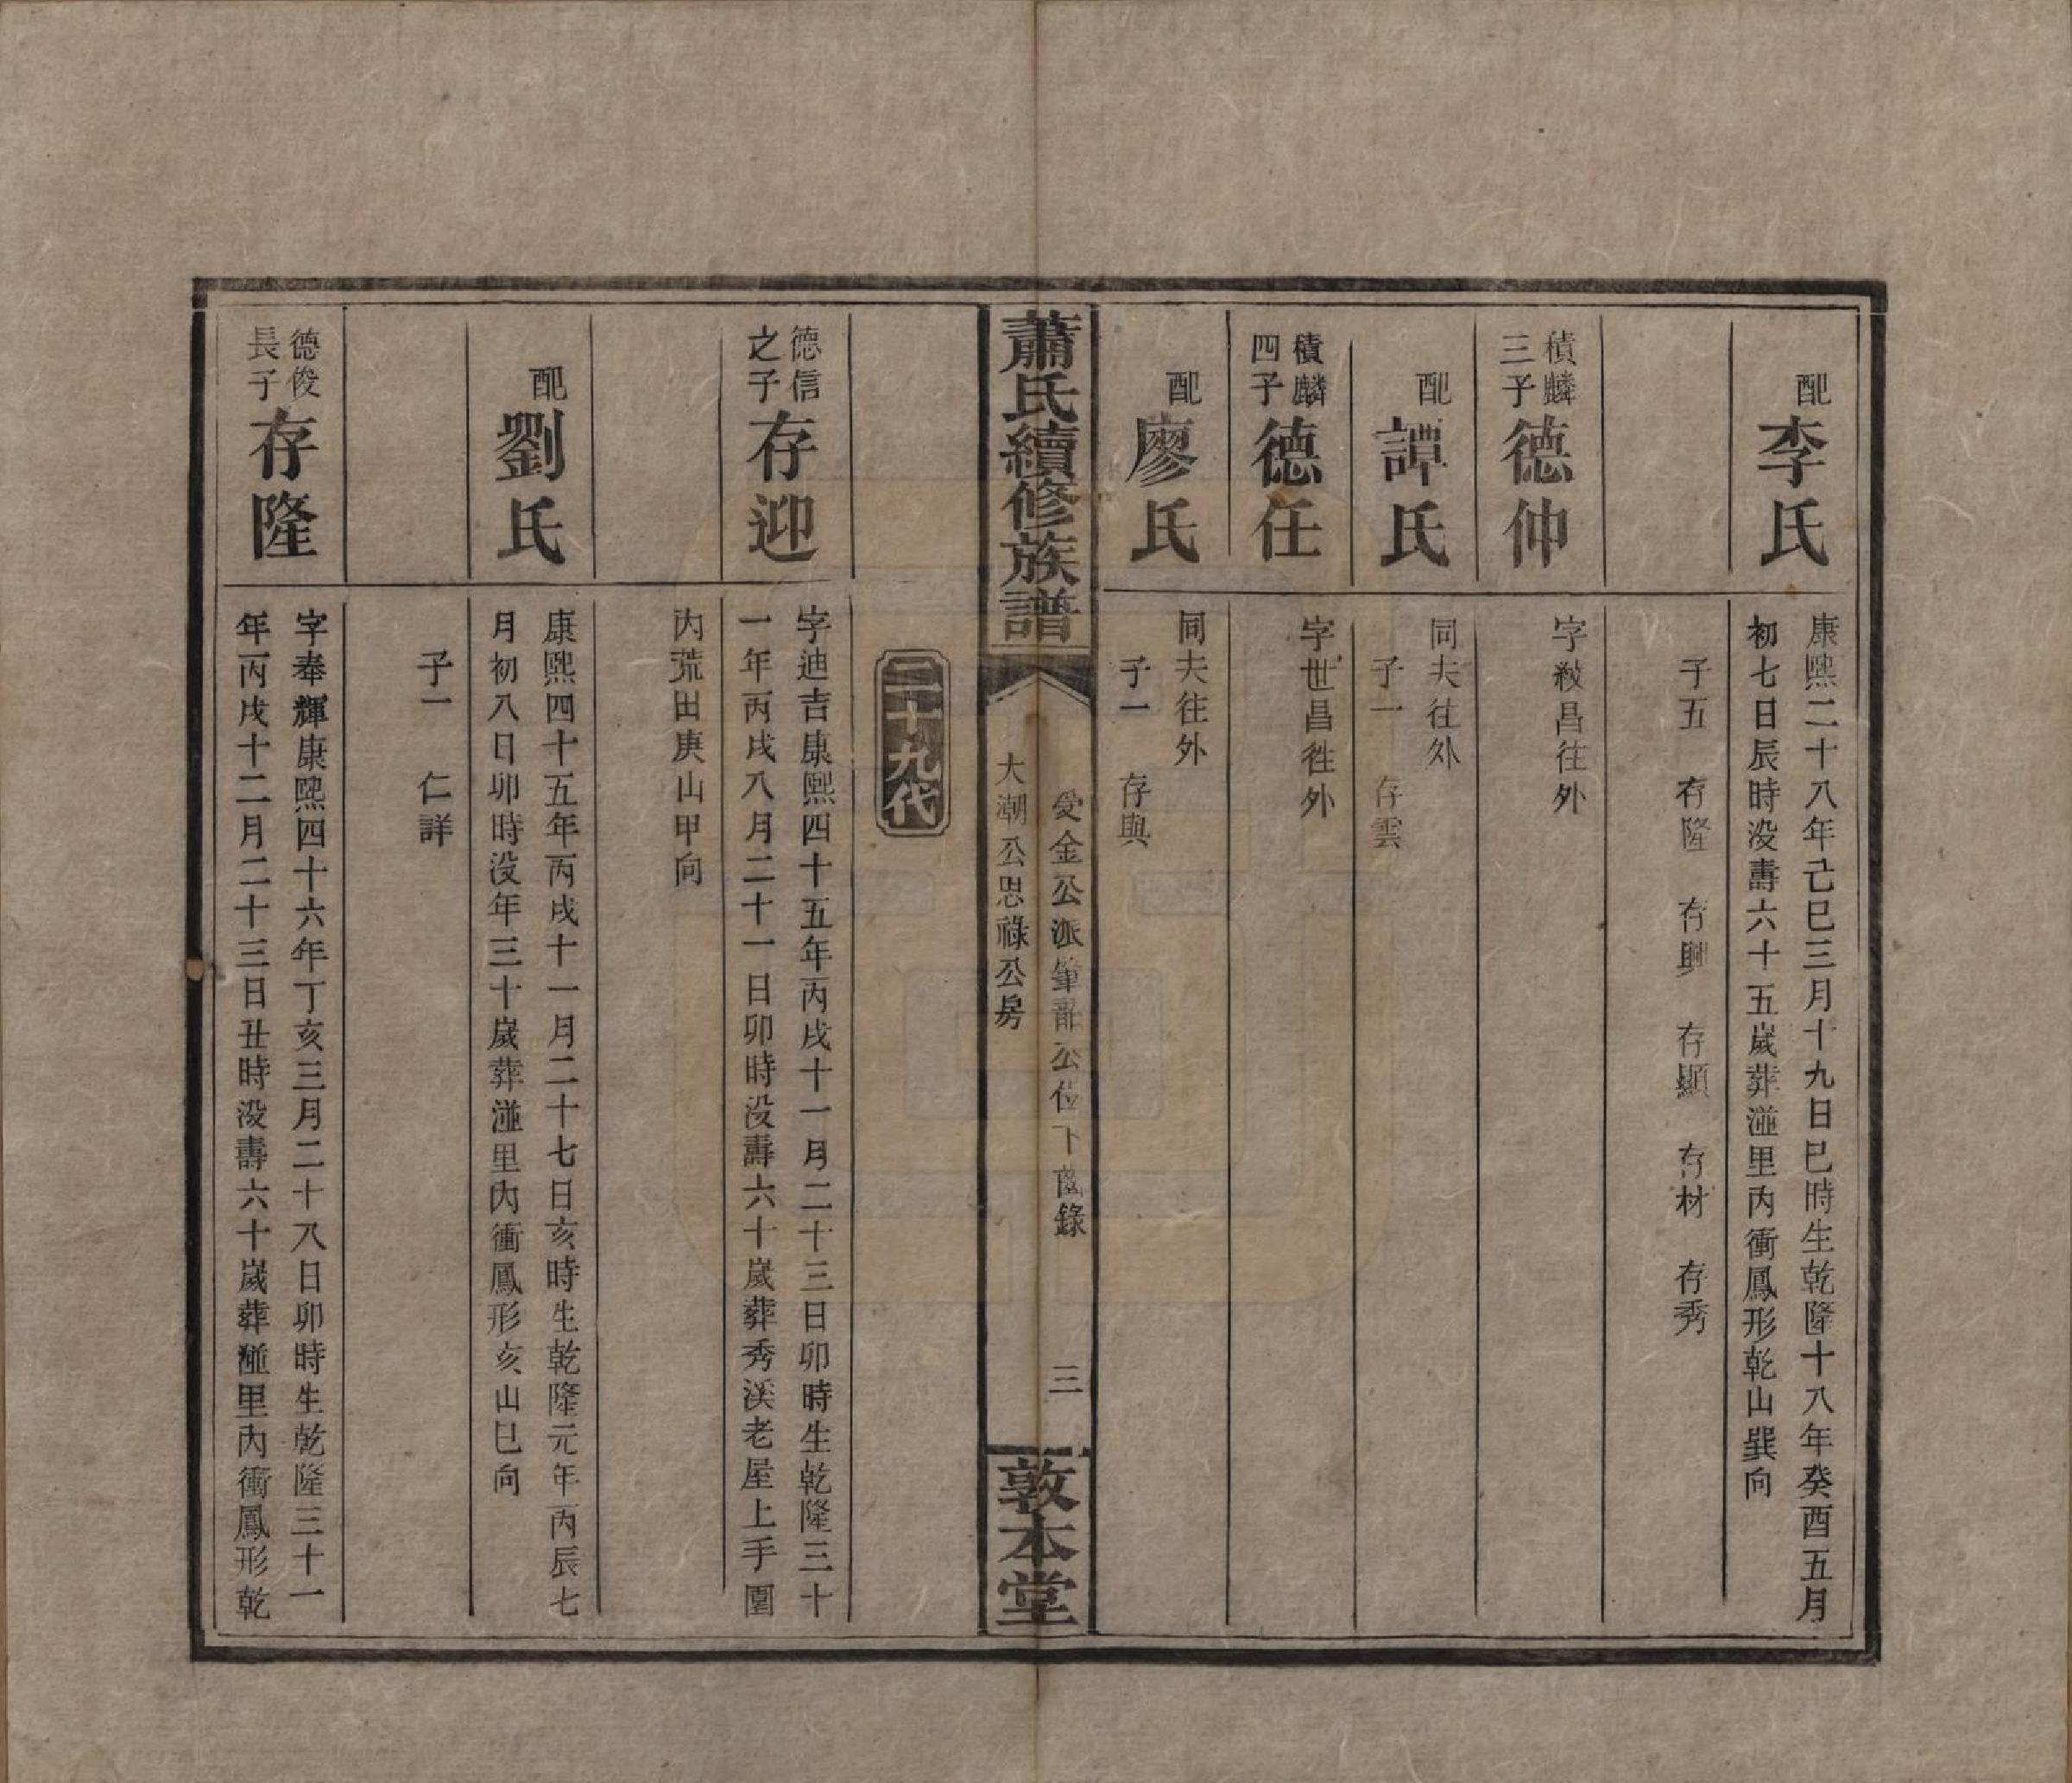 配
李氏
康熙二十八年己巳三月十九日巳時生乾隆十八年癸酉五月
初七日辰時没壽六十五歲葬湴里内衝鳳形乾山巽向
子五 存隆 存興 存顯 存材 存秀
積麟
三子
德仲
字紋昌往外
配
譚氏
同夫往外
子一 存雲
積麟
四子
德任
字世昌徃外
配
廖氏
同夫往外
子一 存與
蕭氏續修族譜
愛金公派 公位下 錄
大潮公思祿公房
三
敦本堂
二十九代
德信
之子
存迎
字迪吉康熙四十五年丙戌十一月二十三日卯時生乾隆三十
一年丙戌八月二十一日卯時没壽六十歲葬秀溪老屋上手園
内荒田庚山甲向
配
劉氏
康熙四十五年丙戌十一月二十七日亥時生乾隆元年丙辰七
月初八日卯時没年三十歲葬湴里内衝鳳形亥山巳向
子一 仁詳
德俊
長子
存隆
字奉輝康熙四十六年丁亥三月二十八日卯時生乾隆三十一
年丙戌十二月二十三日丑時没壽六十歲葬湴里内衝鳳形乾